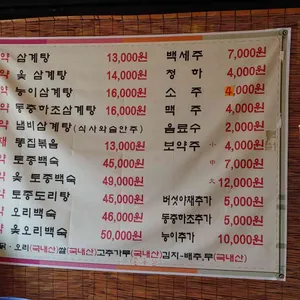 약 삼계탕 13,000원 백세주 7,000원
약 옻 삼계탕 14,000원 청하 4,000원
약 능이삼계탕 16,000원 소주 4,000원
약 동충하초삼계탕 16,000원 맥주 4,000원
약 냄비삼계탕(식사와술안주) 음료수 2,000원
재 똥집볶음 13,000원 보약주 小 4,000원
약 토종백숙 45,000원 中 7,000원
약 옻 토종백숙 49,000원 大 12,000원
약 토종도리탕 45,000원 버섯야채추가 5,000원
약 오리백숙 46,000원 동충하초추가 5,000원
약 옻오리백숙 50,000원 능이추가 10,000원
닭·오리(국내산)쌀(국내산)고추가루(국내산)김치-배추,무(국내산)